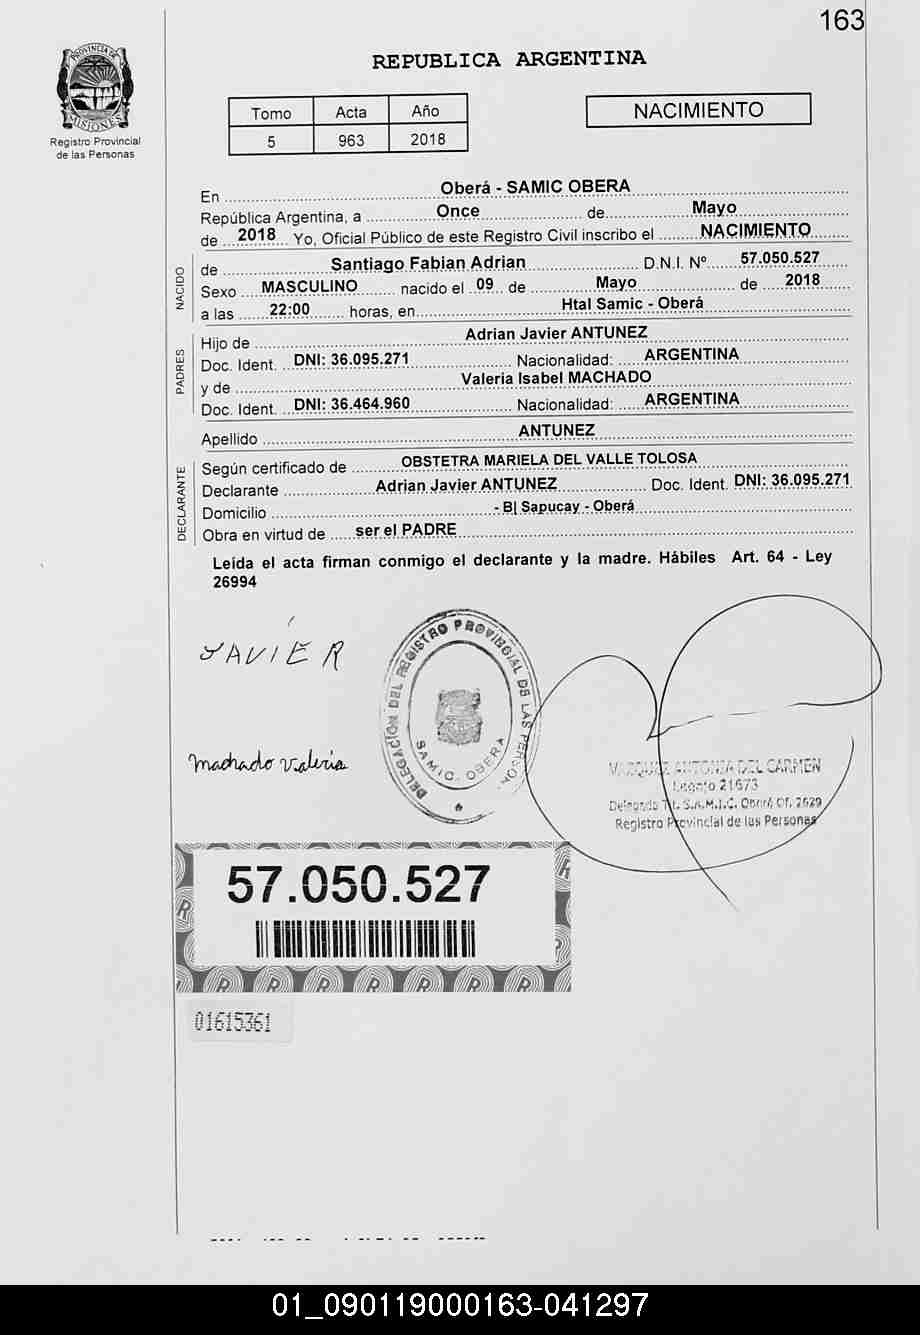 163
PROVINCIA DE
MISIONES
Registro Provincial
de las Personas
REPUBLICA ARGENTINA
Tomo Acta Año
5 963 2018
NACIMIENTO
En Oberá - SAMIC OBERA
República Argentina, a Once de Mayo
de 2018 Yo, Oficial Público de este Registro Civil inscribo el NACIMIENTO
NACIDO
de Santiago Fabian Adrian D.N.I. Nº 57.050.527
Sexo MASCULINO nacido el 09 de Mayo de 2018
a las 22:00 horas, en Htal Samic - Oberá
PADRES
Hijo de Adrian Javier ANTUNEZ
Doc. Ident. DNI: 36.095.271 Nacionalidad: ARGENTINA
y de Valeria Isabel MACHADO
Doc. Ident. DNI: 36.464.960 Nacionalidad: ARGENTINA
Apellido ANTUNEZ
DECLARANTE
Según certificado de OBSTETRA MARIELA DEL VALLE TOLOSA
Declarante Adrian Javier ANTUNEZ Doc. Ident. DNI: 36.095.271
Domicilio - B| Sapucay - Oberá
Obra en virtud de ser el PADRE
Leída el acta firman conmigo el declarante y la madre. Hábiles Art. 64 - Ley
26994
JAVIER
DELEGACIÓN DEL REGISTRO PROVINCIAL DE LAS PERSON.
SAMIC. OBERA
Machado Valeria
MARQUEZ ANTONIA DEL CARMEN
Legajo 21673
Delegada Tit. S.A.M.I.C. Oberá Of. 2629
Registro Provincial de las Personas
57.050.527
01615361
01_090119000163-041297